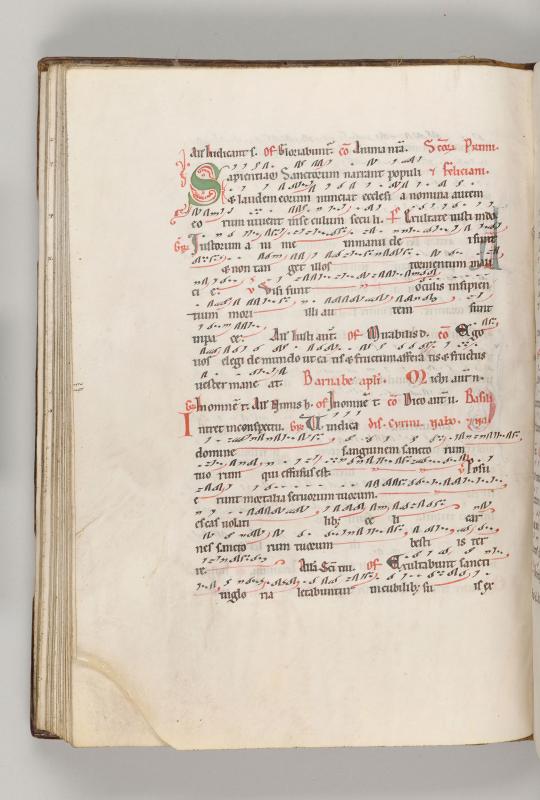 All Iudicant s. Of Gloriabunt. Co Anima nra. Scor Primi
Sapientiam Sanctorum narrant populi & feliciani.
& laudem eorum nunciat ecclesia nomina autem
eo rum uiuent in seculum seculi. Ps Exultate iusti in dno
Gr Iustorum a ni me in manu de i sunt
& non tan get illos tormentum mali
ci e. V Visi sunt oculis insipien
tium mori illi au tem sunt
in pa ce. All Iusti aut. Of Mirabilis d. Co Ego
uos elegi de mundo ut ea tis & fructum affera tis & fructus
uester mane at. Barnabe apli. Michi aut n.
Gr In omne t. All Nimis h. Of In omne t. Co Vico aut u. Basili
Intret in conspectu. Gr Vindica dis. Cyrini. nabo.
domine sanguinem sancto rum
tuo rum qui effusus est. V Posu
e runt mortalia seruorum tuorum.
escas uolati lib ce li car
nes sancto rum tuorum besti is ter
re. All Sci tui. Of Exultabunt sancti
in glo ria letabuntur in cubilib su is ex